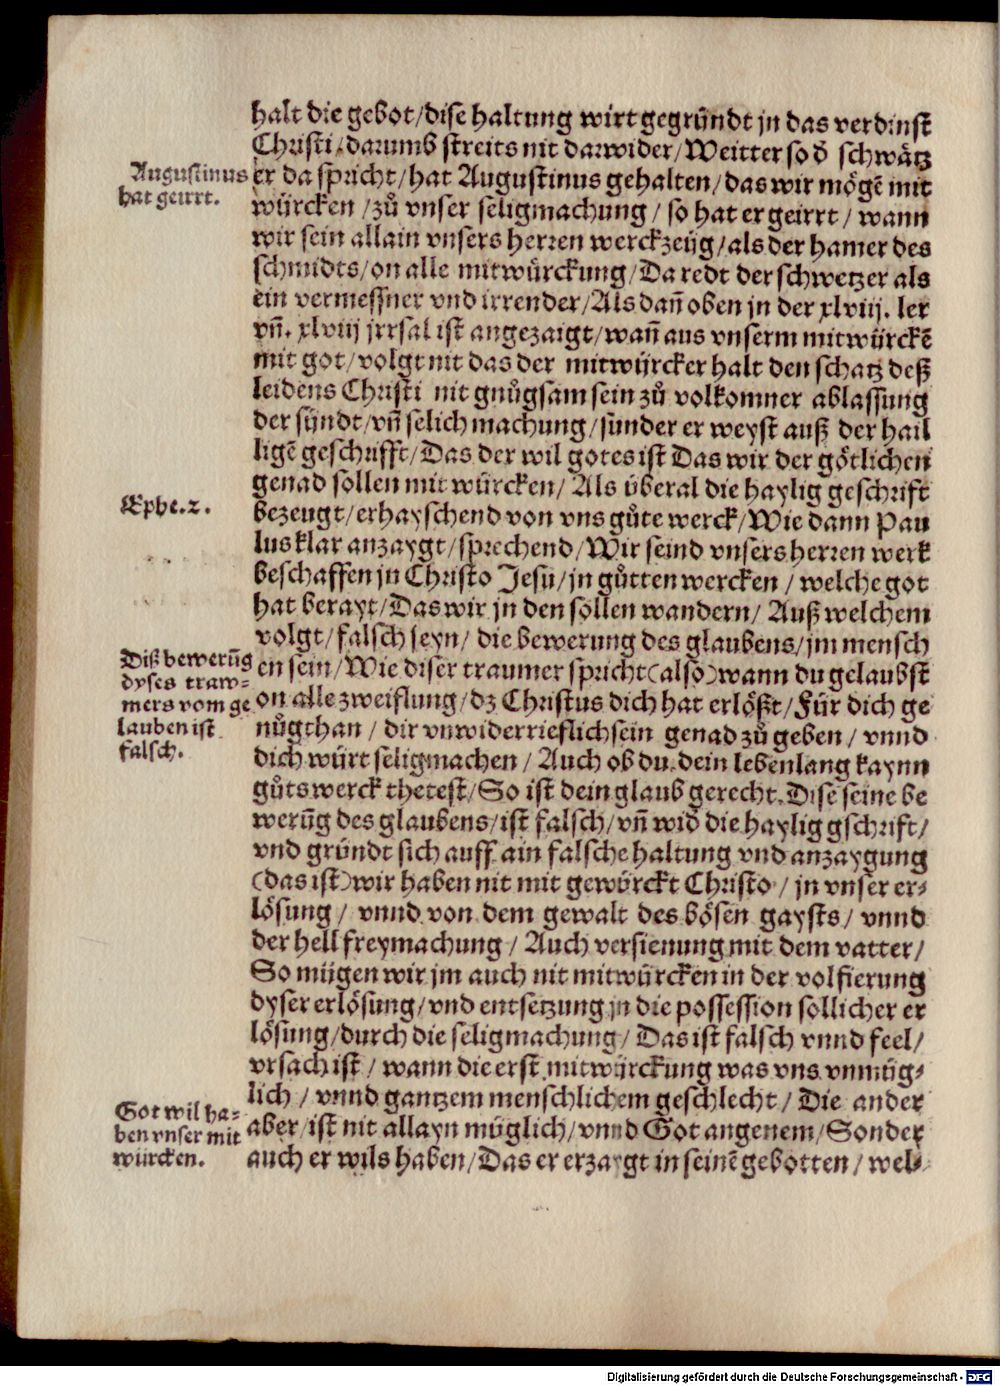 halt die gebot/dise haltung wirt gegründt jn das verdinst
Christi/darumb streits nit darwider/Weitter so d̄ schwätz
Augustinus
hat geirrt.
er da spricht/hat Augustinus gehalten/das wir mögē mit
würcken/zů vnser seligmachung/so hat er geirrt/wann
wir sein allain vnsers herren werckzeüg/als der hamer des
schmidts/on alle mitwürckung/Da redt der schwetzer als
ein vermessner vnd irrender/Als dañ oben jn der xlviij. ler
vñ. xlviij jrrsal ist angezaigt/wañ aus vnserm mitwürckē
mit got/volgt nit das der mitwürcker halt den schatz deß
leidens Christi nit gnůgsam sein zů volkomner ablassung
der sündt/vñ selich machung/sunder er weyst auß der hail
ligē geschrifft/Das der wil gotes ist Das wir der götlichen
genad sollen mit würcken/Als überal die haylig geschrift
Ephe.2.
bezeugt/erhayschend von vns gůte werck/Wie dann Pau
lus klar anzaygt/sprechend/Wir seind vnsers herren werk
beschaffen jn Christo Jesu/jn gůtten wercken/welche got
hat berayt/Das wir jn den sollen wandern/Auß welchem
volgt/falsch seyn/die bewerung des glaubens/jm mensch
Diß bewerūg
dyses traw-
mers vom ge
lauben ist
falsch.
en sein/Wie diser traumer spricht(also)wann du gelaubst
on alle zweiflung/dz Christus dich hat erlößt/Für dich ge
nůgthan/dir vnwiderrieflich sein genad zů geben/vnnd
dich würt seligmachen/Auch ob du dein lebenlang kaynn
gůts werck thetest/So ist dein glaub gerecht. Dise seine be
werūg des glaubens/ist falsch/vñ wid̄ die haylig gschrift/
vnd gründt sich auff ain falsche haltung vnd anzaygung
(das ist)wir haben nit mit gewürckt Christo/jn vnser er-
lösung/vnnd von dem gewalt des bösen gaysts/vnnd
der hell freymachung/Auch versienung mit dem vatter/
So mügen wir jm auch nit mitwürcken in der volfierung
dyser erlösung/vnd entsetzung jn die possession sollicher er
lösung/durch die seligmachung/Das ist falsch vnnd feel/
vrsach ist/wann die erst mitwürckung was vns vnmüg-
lich/vnnd gantzem menschlichem geschlecht/Die ander
Got wil ha-
ben vnser mit
würcken.
aber/ist nit allayn müglich/vnnd Got angenem/Sonder
auch er wils haben/Das er erzaygt in seinē gebotten/wel-
Digitalisierung gefördert durch die Deutsche Forschungsgemeinschaft - DFG